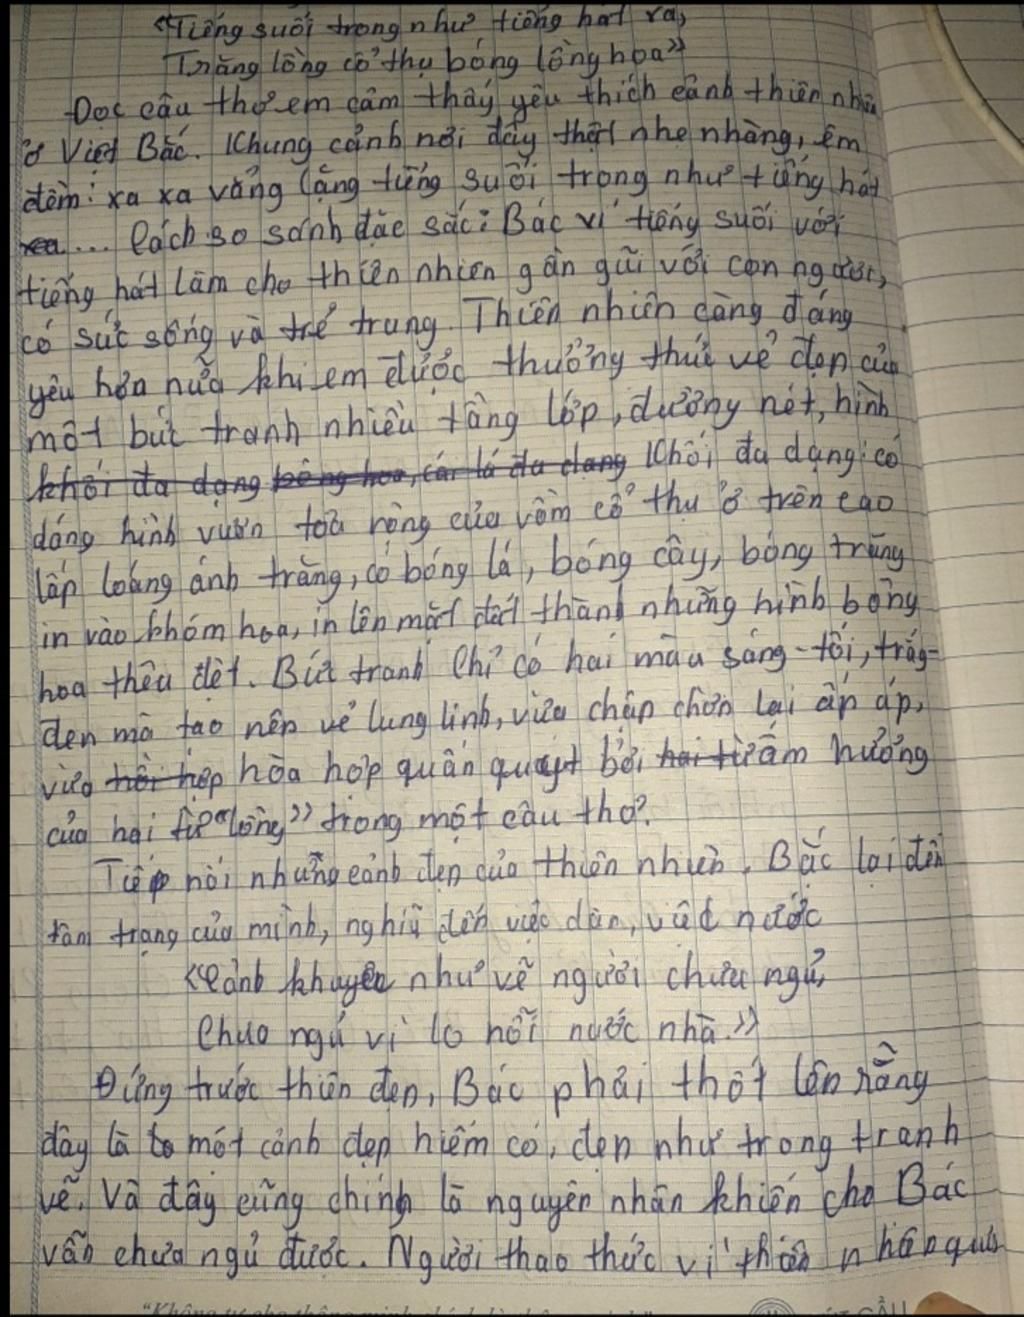 "Tiếng suối trong như tiếng hát xa,
Trăng lồng cổ thụ bóng lồng hoa"
Đọc câu thơ em cảm thấy yêu thích cảnh thiên nhiên
ở Việt Bắc. Khung cảnh nơi đây thật nhẹ nhàng, êm
đềm: xa xa vẳng lặng tiếng suối trong như tiếng hát
xa... Cách so sánh đặc sắc: Bác ví tiếng suối với
tiếng hát làm cho thiên nhiên gần gũi với con người,
có sức sống và trẻ trung. Thiên nhiên càng đáng
yêu hơn nữa khi em được thưởng thức vẻ đẹp của
một bức tranh nhiều tầng lớp, đường nét, hình
khối đa dạng bông hoa, cái lá đa dạng khối đa dạng: có
dáng hình vươn toả rộng của vòm cổ thụ ở trên cao
lấp loáng ánh trăng, có bóng lá, bóng cây, bóng trăng
in vào khóm hoa, in lên mặt đất thành những hình bông
hoa thêu dệt. Bức tranh chỉ có hai màu sáng-tối, trắng-
đen mà tạo nên vẻ lung linh, vừa chập chờn lại ấp áp,
vừa hòa hợp quấn quýt bởi hai từ âm hưởng
của hai từ "lồng" trong một câu thơ.
Tiếp nối những cảnh đẹp của thiên nhiên, Bác lại đến
tâm trạng của mình, nghĩ đến việc dân, việc nước
"Cảnh khuya như vẽ người chưa ngủ,
Chưa ngủ vì lo nỗi nước nhà."
Đứng trước thiên đẹp, Bác phải thốt lên rằng
đây là một cảnh đẹp hiếm có, đẹp như trong tranh
vẽ. Và đây cũng chính là nguyên nhân khiến cho Bác
vẫn chưa ngủ được. Người thao thức vì thiên nhiên quá